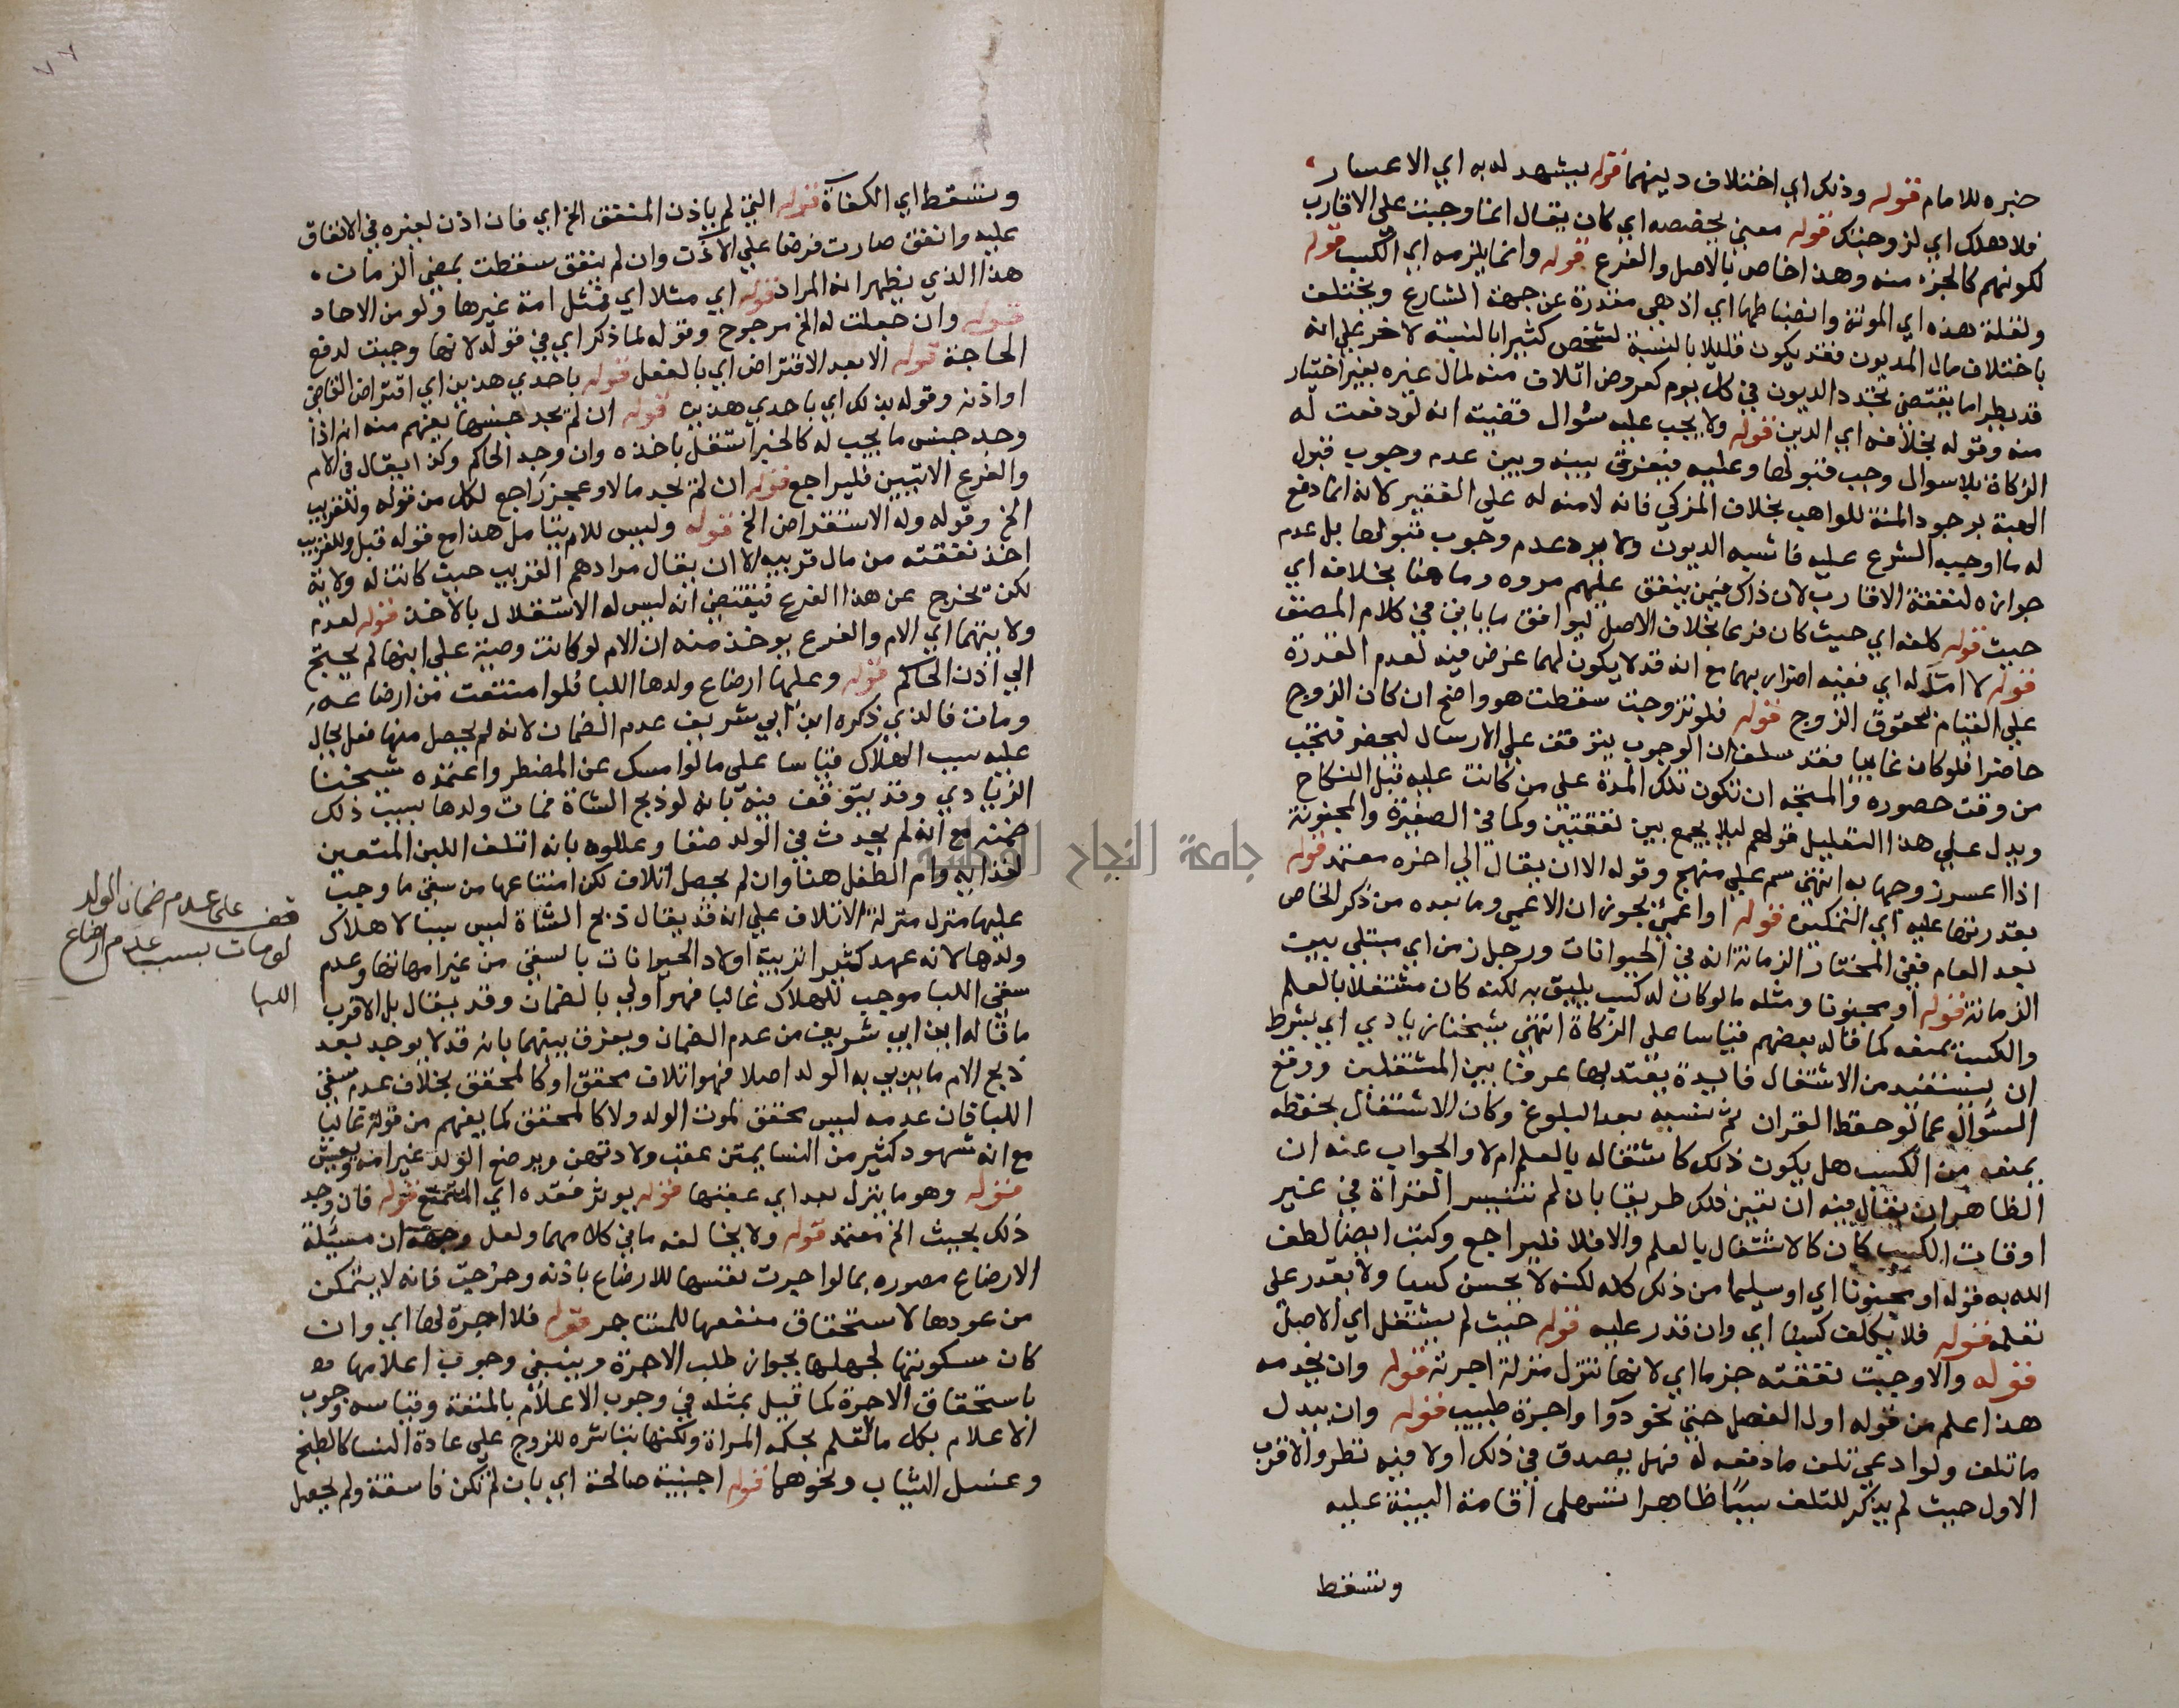 خبره للامام قوله وذلك اي اختلاف دينهما قوله يشهد له به اي الاعسار
فلاهلك اي لزوجتك قوله معني يخصصه اي كان يقال انما وجبت علي الاقارب
لكونهم كالجزء منه وهذا خاص بالاصل والفرع قوله وانما يلزمه اي الكسب قوله
ولقلة هذه اي المونة وانضباطها اي اذ هي مقدرة عن جهة الشارع ويختلف
باختلاف مال المديون فقد يكون قليلا بالنسبة لشخص كثيرا بالنسبة لاخر علي انه
قد يطرا ما يقتضي تجدد الديون في كل يوم كعروض اتلاف منه لمال غيره بغير اختيار
منه وقوله بخلافه اي الدين قوله ولا يجب عليه سوال قضيته انه لو دفعت له
الزكاة بلا سوال وجب قبولها وعليه فيفرق بينه وبين عدم وجوب قبول
الهبة بوجود المنة للواهب بخلاف المزكي فانه لا منه له علي الفقير كانه انما دفع
له ما اوجبه الشرع عليه فاشبه الديون ولا يرد عدم وجوب قبولها بل عدم
جوازه لنفقة الاقارب لان ذاك فيمن ينفق عليهم مروه وما هنا بخلافه اي
حيث قوله كلفه اي حيث كان فرعا بخلاف الاصل ليوافق ما ياتي في كلام المصنف
قوله لا امثلة له اي ففيه اضرار بهما مع انه قد لا يكون لهما غرض فيه لعدم القدرة
علي القيام بحقوق الزوج قوله فلو تزوجت سقطت هو واضح ان كان الزوج
حاضرا فلو كان غايبا فقد سلف ان الوجوب يتوقف علي الارسال ليحضر فتجب
من وقت حضوره والمتجه ان تكون تلك المدة علي من كانت عليه قبل النكاح
ويدل علي هذا التعليل قولهم ليلا يجمع بين نفقتين وكما في الصغيرة والمجنونة
اذا اعسر زوجها به انتهي سم علي منهج وقوله الا ان يقال الي اخره معتمد قوله
بقدرتها عليه اي التمكين قوله او اعمي يجوز ان الاعمي وما بعده من ذكر الخاص
بعد العام ففي المختار الزمانة انه في الحيوانات ورجل زمن اي مبتلي ببيت
الزمانة قوله او مجنونا ومثله ما لو كان له كسب يليق به لكنه كان مشتغلا بالعلم
والكسب يمنعه كما قاله بعضهم قياسا علي الزكاة انتهي شيخنا زيادي اي بشرط
ان يستفيد من الاشتغال فايدة يعتد بها عرفا بين المشتغلين ووقع
السؤال عما لو حفظ القران ثم نسيه بعد البلوغ وكان الاشتغال بحفظه
يمنعه من الكسب هل يكون ذلك كاشتغاله بالعلم ام لا والجواب عنه ان
الظاهر ان يقال فيه ان تعين ذلك طريقا بان لم تتيسر القراة في غير
اوقات الكسب كان كالاشتغال بالعلم والا فلا فليراجع وكتب ايضا لطف
الله به قوله او مجنونا اي او سليما من ذلك كله لكنه لا يحسن كسبا ولا يقدر علي
تعلمه قوله فلا يكلف كسبا اي وان قدر عليه قوله حيث لم يشتغل اي الاصل
قوله والا وجبت نفقته جزما اي لانها تنزل منزلة اجرته قوله وان يخدمه
هذا علم من قوله اول الفصل حتي نحو دوا واجرة طبيب قوله وان يبدل
ما تلف ولو ادعي تلف ما دفعه له فهل يصدق في ذلك اولا فيه نظر والاقرب
الاول حيث لم يذكر للتلف سببا ظاهرا تسهل اقامة البينة عليه
وتسقط
وتسقط اي الكفاة قوله التي لم ياذن المنفق الخ اي فان اذن لغيره في الانفاق
عليه وانفق صارت فرضا علي الاذن وان لم ينفق سقطت بمضي الزمان
هذا الذي يظهر انه المراد قوله اي مثلا اي فمثل امة غيرها ولو من الاحاد
قوله وان جعلت له الخ مرجوح وقوله لما ذكر اي في قوله لانها وجبت لدفع
الحاجة قوله الا بعد الاقتراض اي بالفعل قوله باحدي هذين اي اقتراض القاضي
او اذنه وقوله بذلك اي باحدي هذين قوله ان لم يجد جنسها يفهم منه انه اذا
وجد جنس ما يجب له كالخبز استقل باخذه وان وجد الحاكم وكذا يقال في الام
والفرع الاتيين فليراجع قوله ان لم يجد مالا وعجز راجع لكل من قوله وللقريب
الخ وقوله وله الاستقراض الخ قوله وليس للام يتامل هذا مع قوله قبل وللقريب
اخذ نفقته من مال قريبه الا ان يقال مرادهم القريب حيث كانت له ولاية
لكن تخرج عن هذا الفرع فيقتضي انه ليس له الاستقلال بالاخذ قوله لعدم
ولايتهما اي الام والفرع يوخذ منه ان الام لو كانت وصية علي ابنها لم يحتج
الي اذن الحاكم قوله وعليها ارضاع ولدها اللبا فلو امتنعت من ارضاعه
ومات فالذي ذكره ابن ابي شريف عدم الضمان لانه لم يحصل منها فعل يحال
عليه سبب الهلاك قياسا علي ما لو امسك عن المضطر واعتمده شيخنا
الزيادي وقد يتوقف فيه بانه لو ذبح الشاة فمات ولدها بسبب ذلك
ضمنه مع انه لم يحدث في الولد صنعا وعللوه بانه اتلف اللبن المتعين
لغذايه وام الطفل هنا وان لم يحصل اتلاف لكن امتناعها من سقي ما وجب
عليها منزل منزلة الاتلاف علي انه قد يقال ذبح الشاة ليس سببا لاهلاك
ولدها لانه عهد كثيرا تربية اولاد الحيوانات بالسقي من غير امهاتها وعدم
سقي اللبا موجب للهلاك غالبا فهو اولي بالضمان وقد يقال بل الاقرب
ما قاله ابن ابي شريف من عدم الضمان ويفرق بينهما بانه قد لا يوجد بعد
ذبح الام ما يربي به الولد اصلا فهو اتلاف محقق او كالمحقق بخلاف عدم سقي
اللبا فان عدمه ليس محقق لموت الولد ولا كالمحقق كما يفهم من قوله غالبا
مع انه شهود كثير من النسا يمتن عقب ولادتهن ويرضع الولد غير امه ويعيش
قوله وهو ما ينزل بعد اي عقبها قوله يوثر فقده اي التمتع قوله فان وجد
ذلك بحيث الخ معتمد قوله ولا يخالفه ما في كلامهما ولعل وجهه ان مسئلة
الارضاع مصوره بما لو اجرت نفسها للارضاع باذنه وحينئذ فانه لا يتمكن
من عودها لاستحقاق منفعها للمستاجر قوله فلا اجرة لها اي وان
كان سكوتها لجهلها بجواز طلب الاجرة وينبغي وجوب اعلامها
باستحقاق الاجرة كما قيل بمثله في وجوب الاعلام بالمتعة وقياسه وجوب
الاعلام بكل ما لا تعلم بحكمه المراة ولكنها تباشره للزوج علي عادة النسا كالطبخ
وغسل الثياب ونحوهما قوله اجنبية صالحة اي بان لم تكن فاسقة ولم يحصل
قف علي عدم ضمان الولد
لو مات بسبب عدم ارضاع
اللبا
جامعة النجاح الوطنية